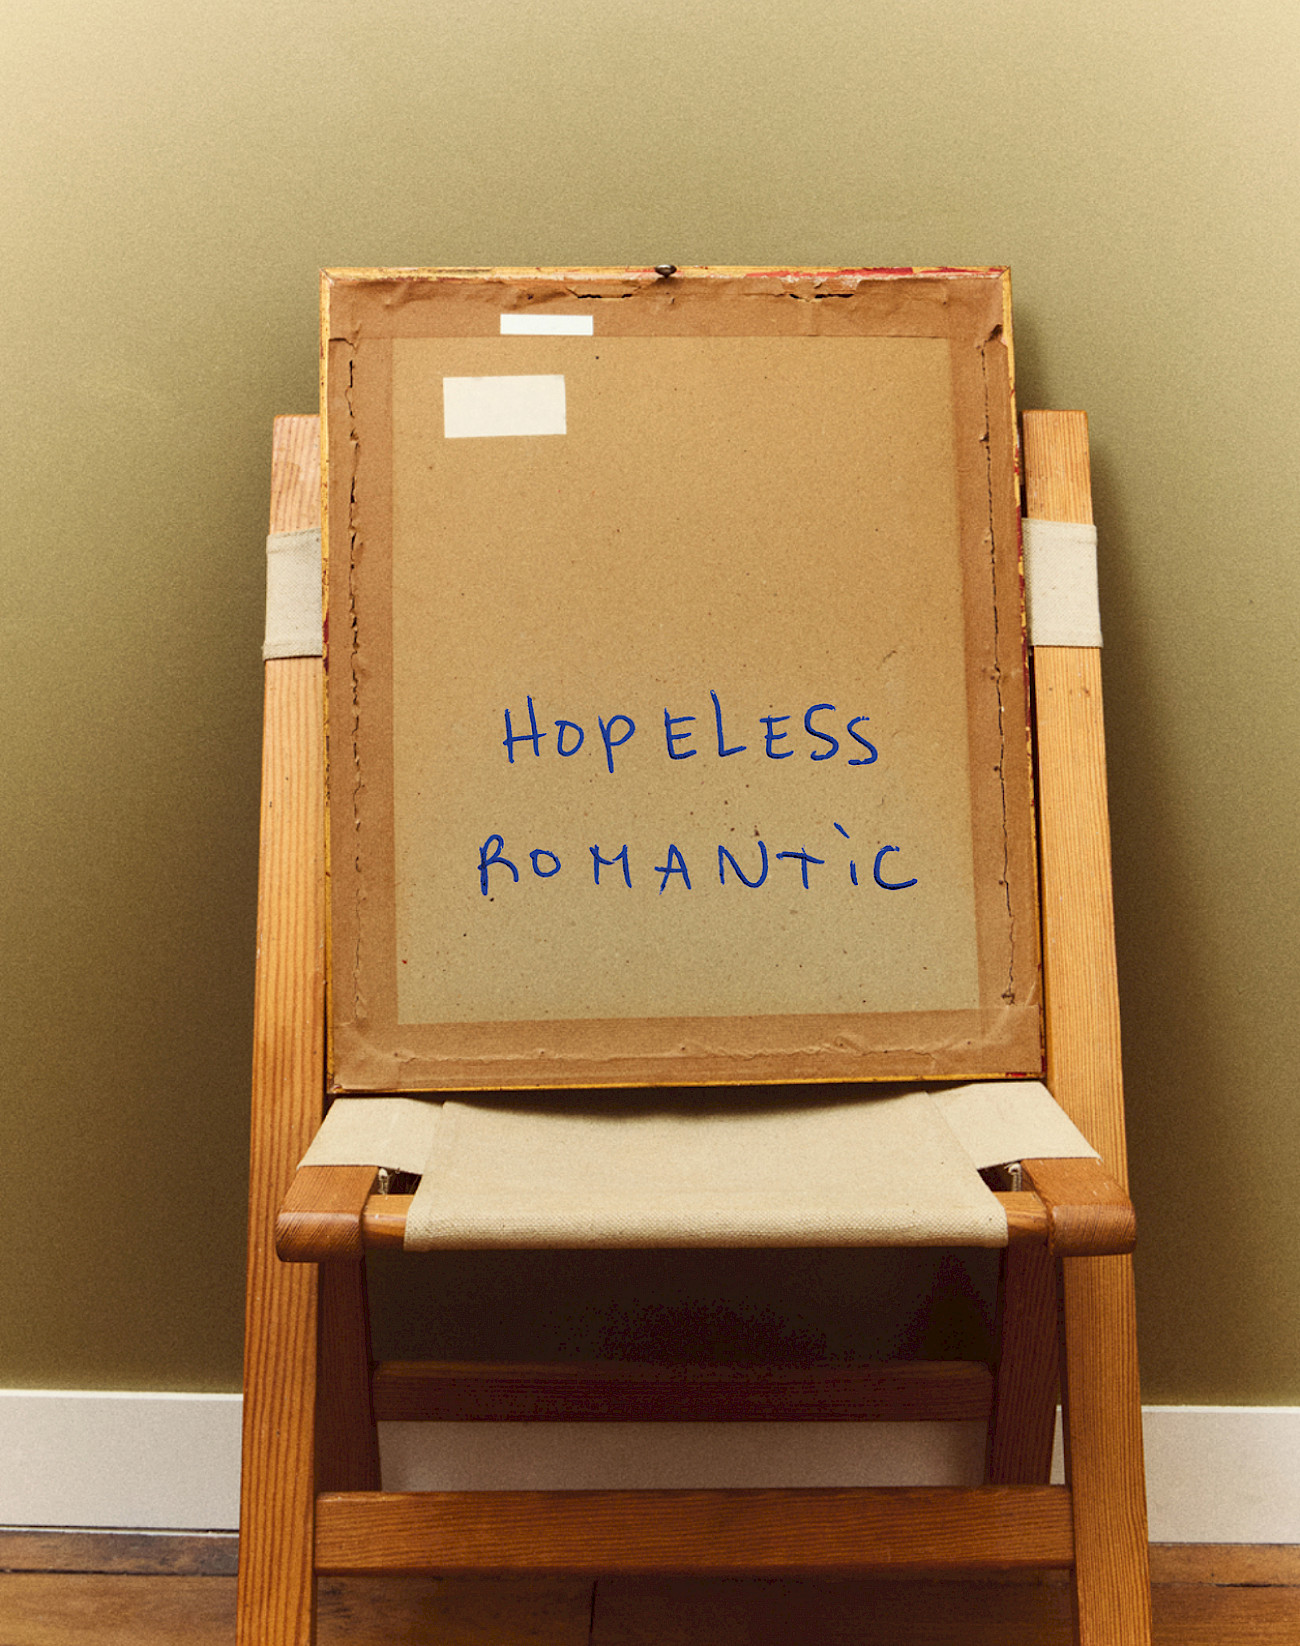 HOPELESS
ROMANTiC